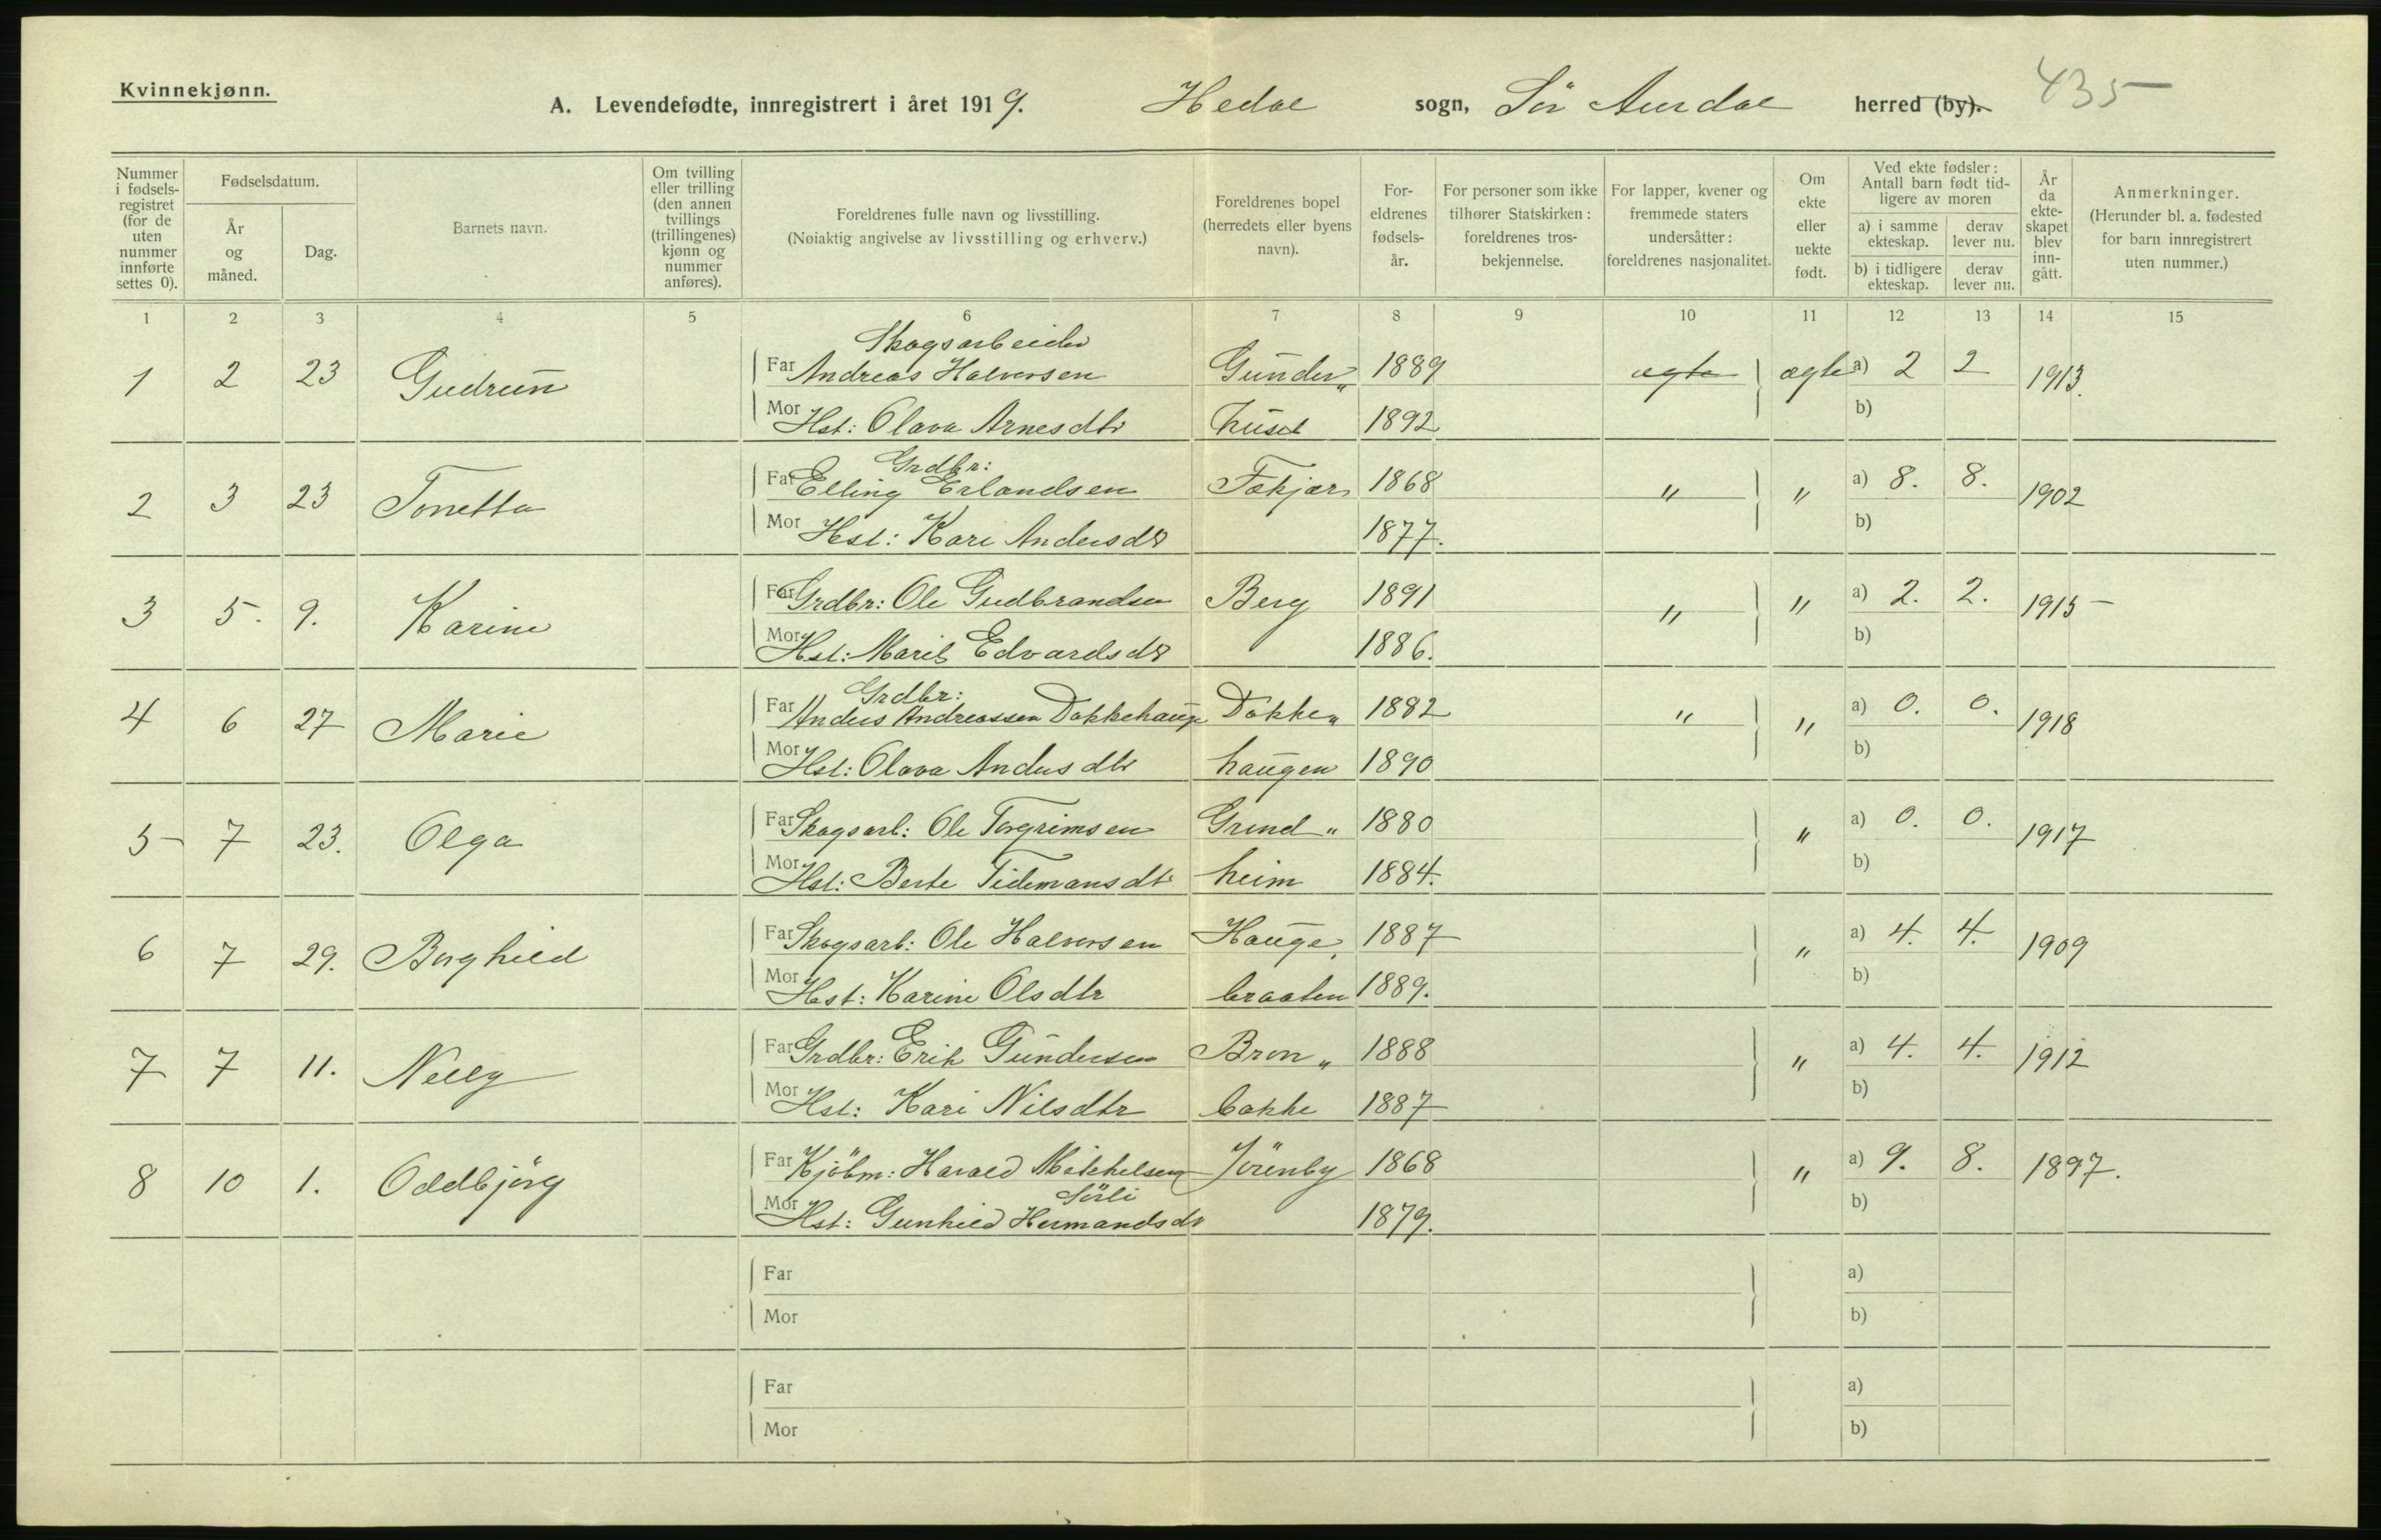 Kvinnekjønn.
A. Levendefødte, innregistrert i året 1919. Hedal sogn, Sör Aurdal herred (by). 435
Nummer i fødsels-registret (for de uten nummer innførte settes 0).
Fødselsdatum.
År og måned.
Dag.
Barnets navn.
Om tvilling eller trilling (den annen tvillings (trillingenes) kjønn og nummer anføres).
Foreldrenes fulle navn og livsstilling.
(Nøiaktig angivelse av livsstilling og erhverv.)
Foreldrenes bopel (herredets eller byens navn).
For-eldrenes fødsels-år.
For personer som ikke tilhører Statskirken: foreldrenes tros-bekjennelse.
For lapper, kvener og fremmede staters undersåtter: foreldrenes nasjonalitet.
Om ekte eller uekte født.
Ved ekte fødsler: Antall barn født tid-ligere av moren
a) i samme ekteskap.
derav lever nu.
b) i tidligere ekteskap.
derav lever nu.
År da ekte-skapet blev inn-gått.
Anmerkninger.
(Herunder bl. a. fødested for barn innregistrert uten nummer.)
1 2 3 4 5 6 7 8 9 10 11 12 13 14 15
Skogsarbeider
1 2 23 Gudrun Far Andreas Halvorsen Gunder„ 1889 ægte ægte a) 2 2 1913.
Mor Hst: Olava Arnesdtr huset 1892 b)
Grdbr:
2 3 23 Tonetta Far Elling Erlandsen Fekjær 1868 " " a) 8. 8. 1902
Mor Hst: Kari Andersdtr 1877. b)
3 5. 9. Karine Far Grdbr: Ole Gudbrandsen Berg 1891 " " a) 2. 2. 1915
Mor Hst: Marit Edvardsdtr 1886. b)
Grdbr:
4 6 27 Marie Far Anders Andreassen Dokkehaug Dokke„ 1882 " " a) 0. 0. 1918
Mor Hst: Olava Andersdtr haugen 1890 b)
5 7 23. Olga Far Skogsarb: Ole Torgrimsen Grind„ 1880 " a) 0. 0. 1917
Mor Hst: Berte Tidemansdtr heim 1884. b)
6 7 29. Borghild Far Skogsarb: Ole Halvorsen Hauge„ 1887 " a) 4. 4. 1909
Mor Hst: Karine Olsdtr braaten 1889. b)
7 7 11. Nelly Far Grdbr: Erik Gundersen Bron„ 1888 " a) 4. 4. 1912
Mor Hst: Kari Nilsdtr bakke 1887 b)
8 10 1. Oddbjörg Far Kjöbm: Harald Mikkelsen Jörenby 1868 " a) 9. 8. 1897.
Sörli
Mor Hst: Gunhild Hermandsdr 1879. b)
Far a)
Mor b)
Far a)
Mor b)